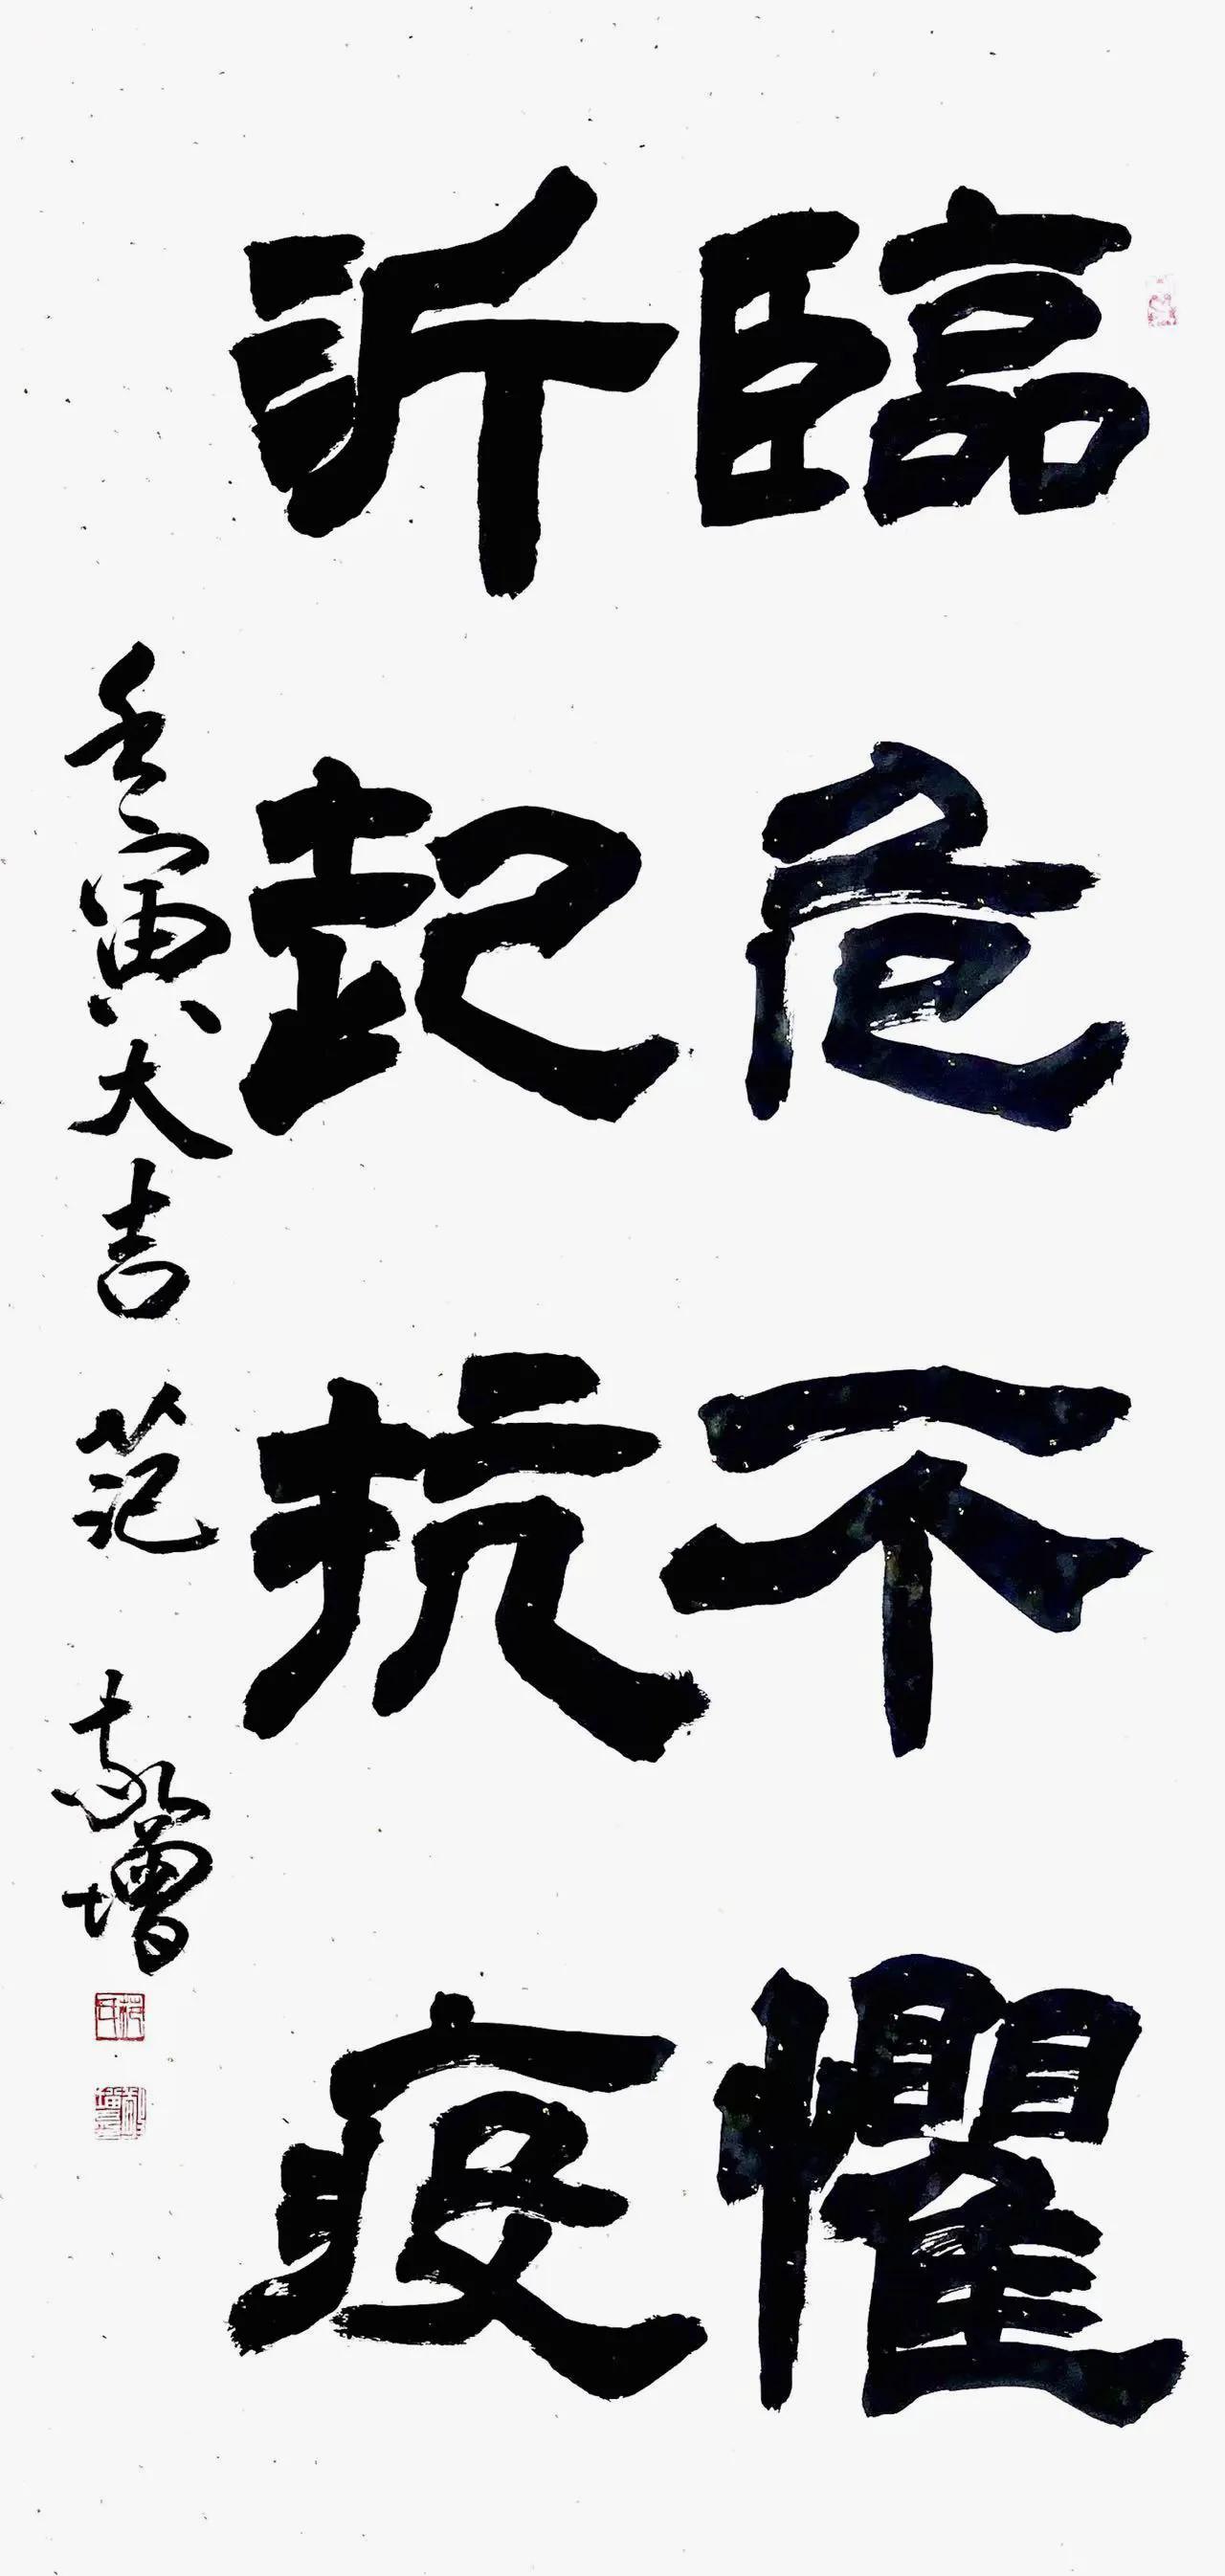 臨危不懼
所起抗疫
壬寅大吉 范敬增